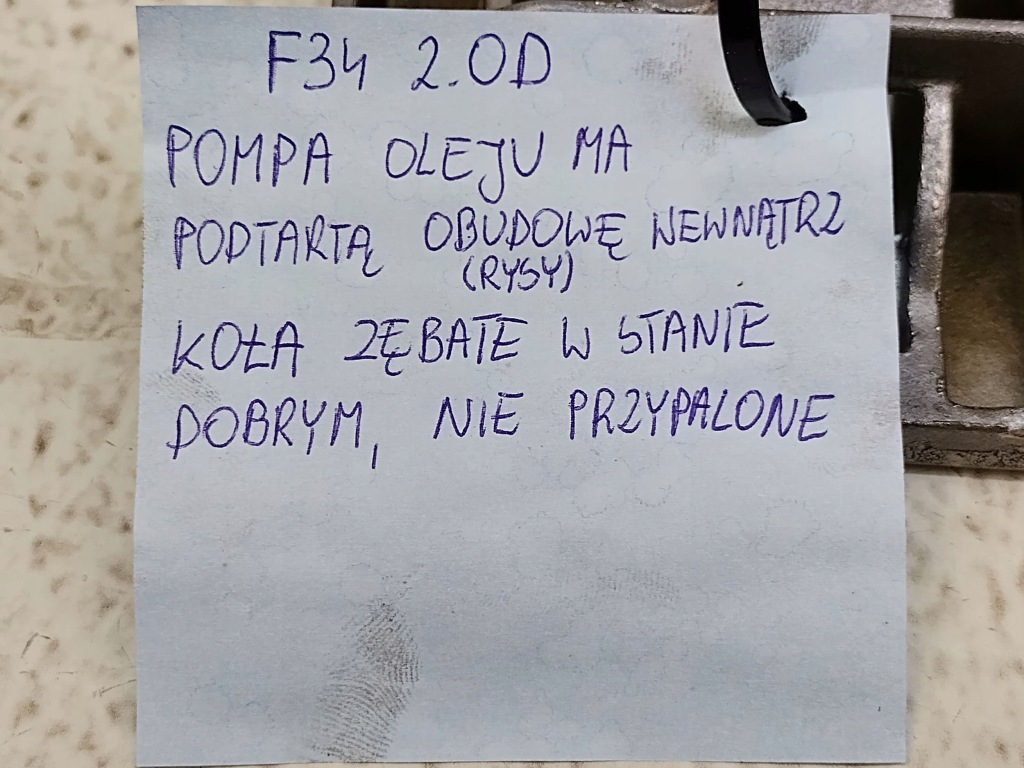 F34 2.0D
POMPA OLEJU MA
PODTARTĄ OBUDOWĘ WEWNĄTRZ
(RYSY)
KOŁA ZĘBATE W STANIE
DOBRYM, NIE PRZYPALONE